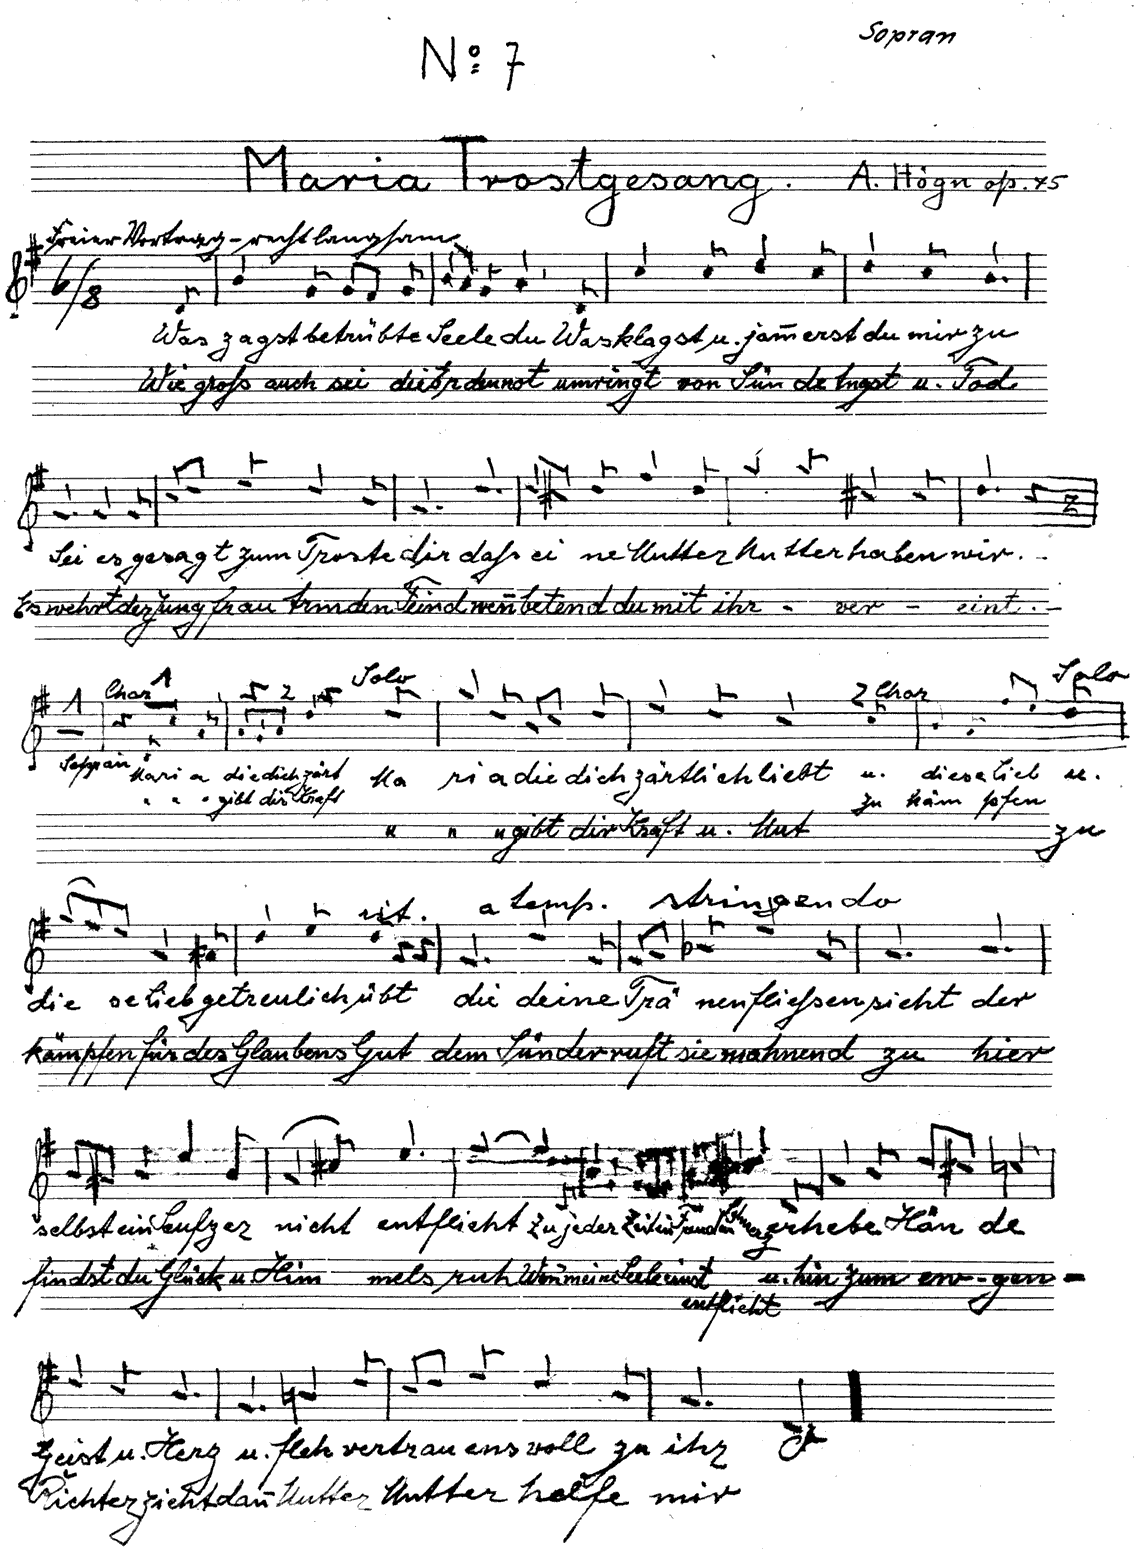 Sopran
No: 7
Maria Trostgesang. A. Högn op. 45
Freier Vortrag – recht langsam
6/8
Was zagst betrübte Seele du Was klagst u. jam̄erst du mir zu
Wie gross auch sei die Erdennot umringt von Sünde Angst u. Tod
Sei es gesagt zum Troste dir dass ei ne Mutter Mutter haben wir. -
Es wehrt der Jungfrau Arm den Feind wen̄ betend du mit ihr - ver - eint. -
1 Chor 1 2 Solo 2 Chor Solo
Sopran Mari a die dich zärt Ma ri a die dich zärtlich liebt u. diese lieb u.
" " " gibt dir Kraft zu käm pfen
" " " gibt dir Kraft u. Mut zu
rit. a temp. stringendo
die se lieb getreulich übt die deine Trä nen fliessen sieht der
kämpfen für des Glaubens Gut dem Sünder ruft sie mahnend zu hier
selbst ein Seufzer nicht entflieht zu jeder Zeit in Freud u. Schmerz erhebe Hän de
findst du Glück u. Him mels ruh Wen̄ meine Seele einst u. hin zum ew - gen -
entflieht
Geist u. Herz u. fleh vertrau ens voll zu ihr
Richter zieht dan̄ Mutter Mutter helfe mir